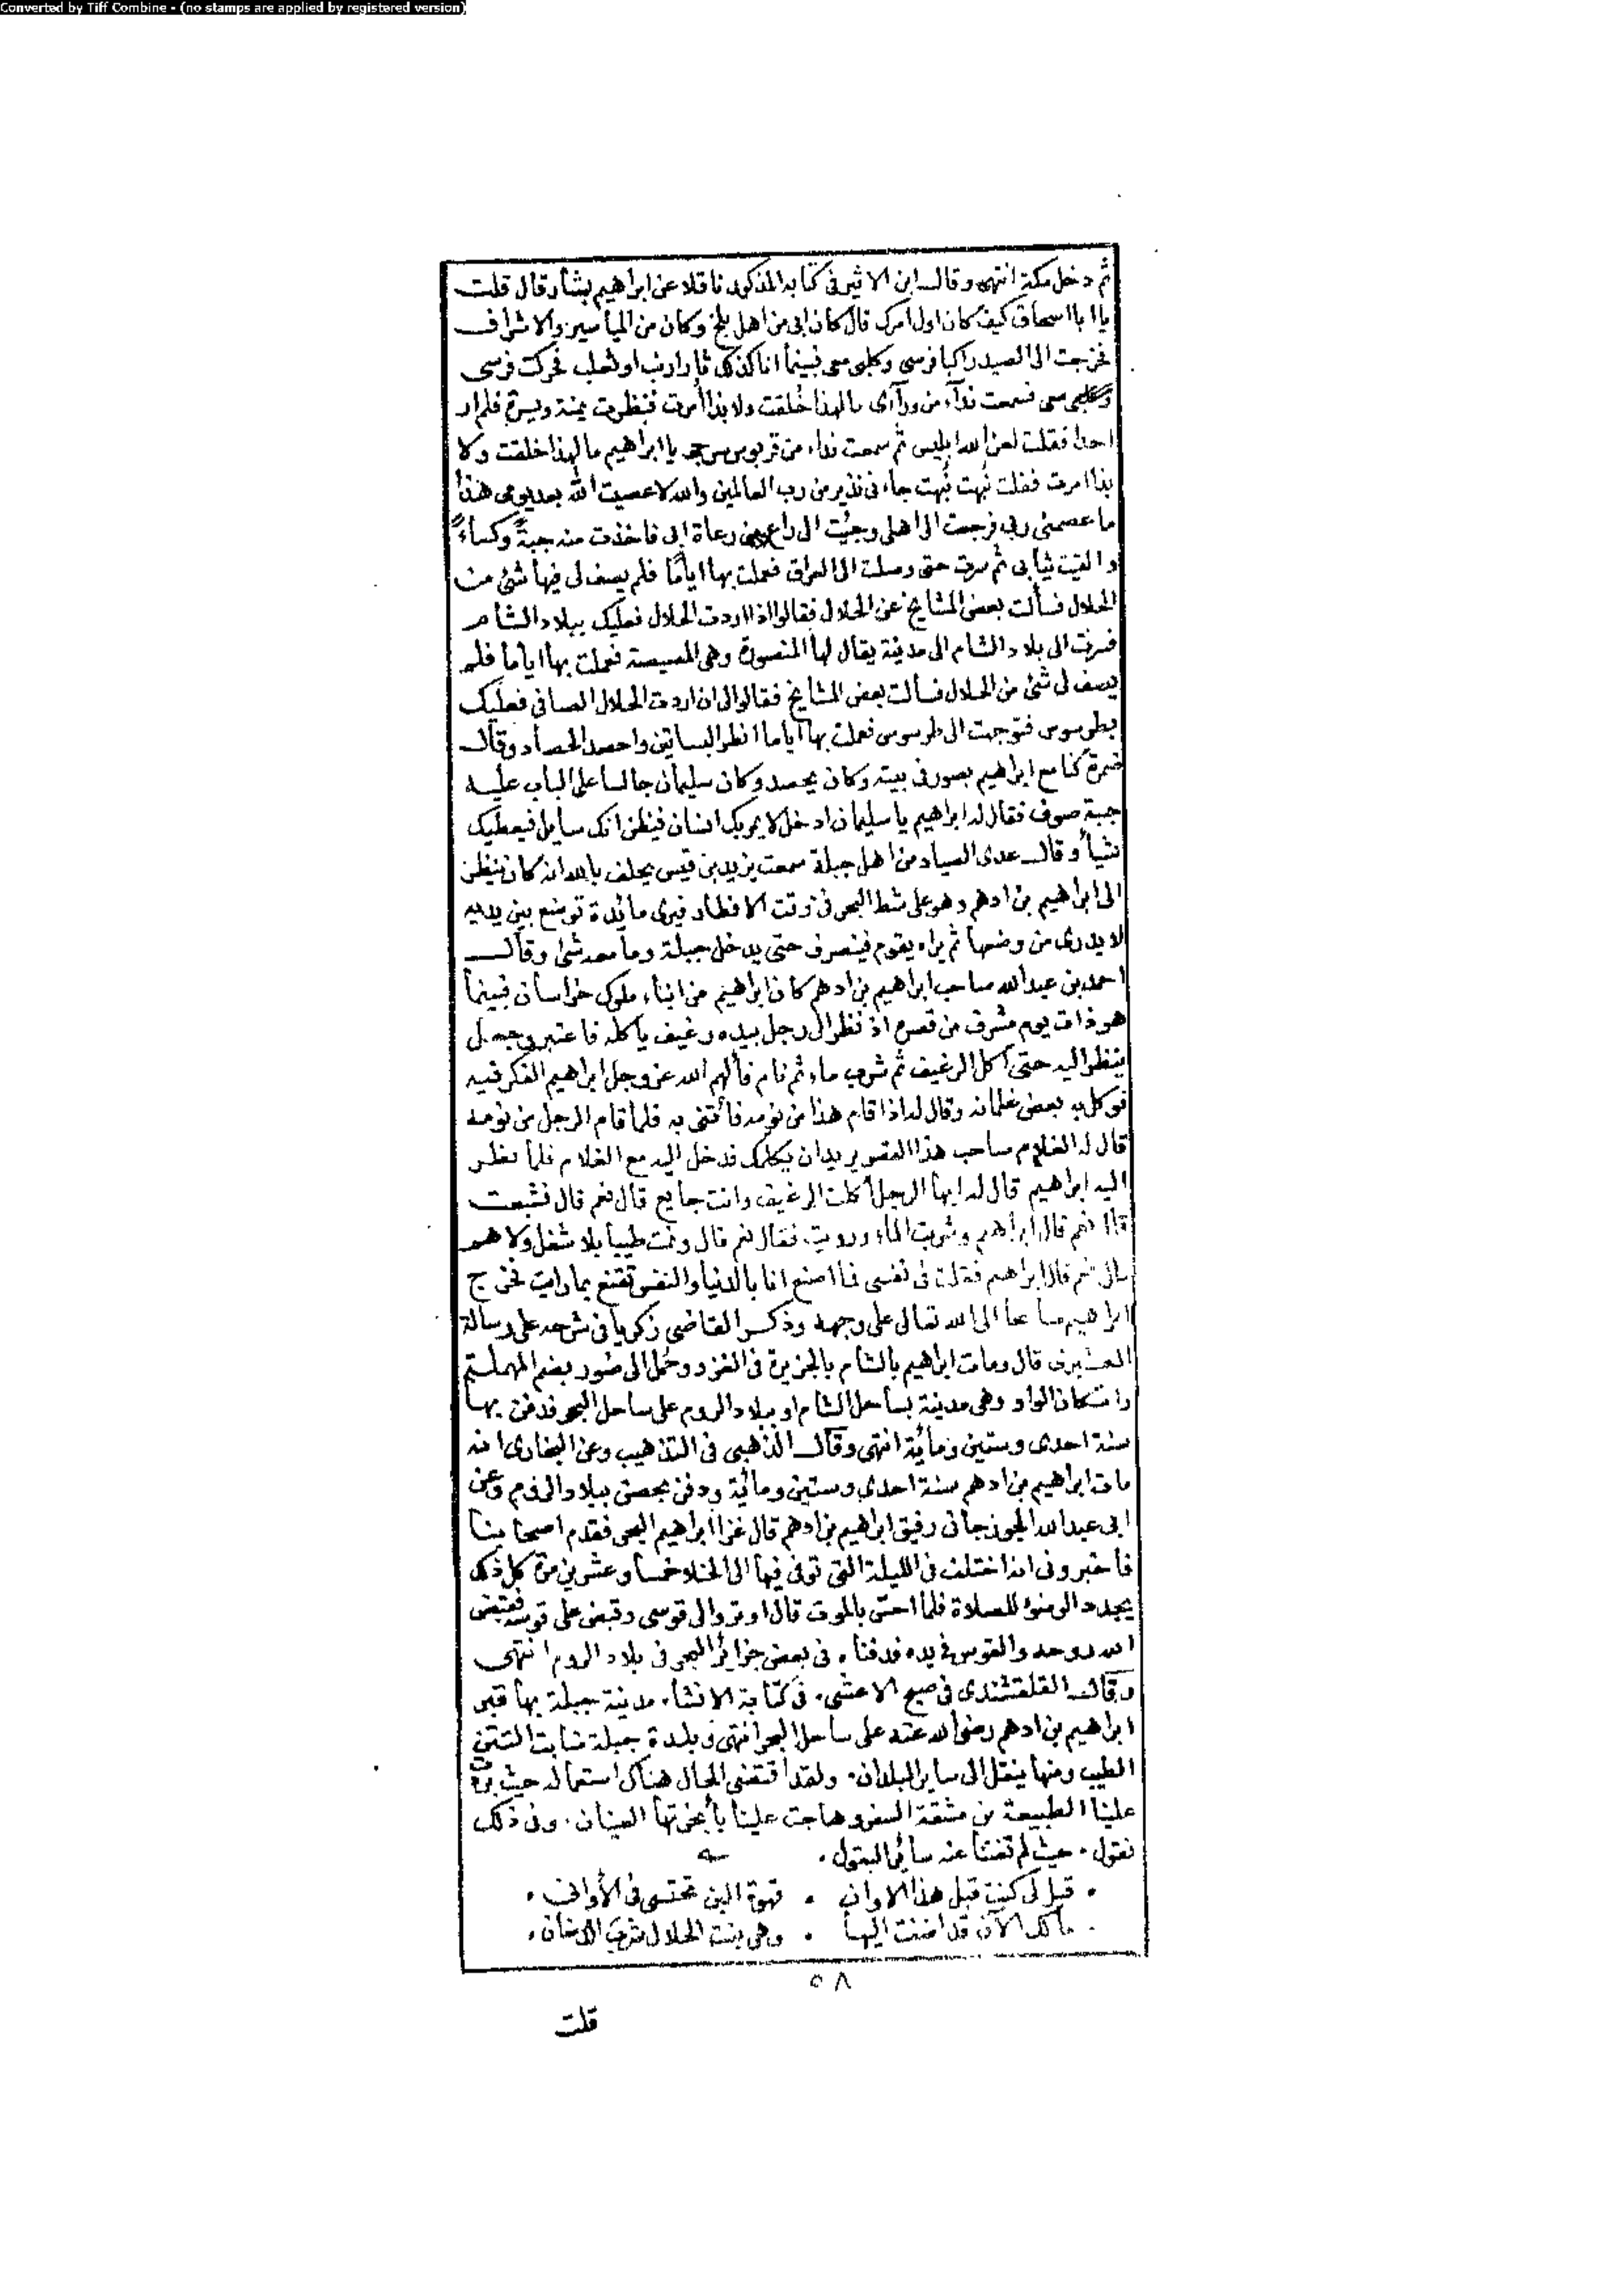 Converted by Tiff Combine - (no stamps are applied by registered version)
ثم دخل مكة انتهى وقال ابن الاثير فى كتابه المذكور ناقلا عن ابراهيم بشار قال قلت
يا ابا اسحاق كيف كان اول امرك قال كان ابى من اهل بلخ وكان من المياسير والاشراف
فخرجت الى الصيد راكبا فرسى وكلبى معى فبينما انا كذلك ثار ارنب او ثعلب فحركت فرسى
وكلبى معى فسمعت ندآء من ورآءى ما لهذا خلقت ولا بذا امرت فنظرت يمنة ويسرة فلم ار
احدا فقلت لعن الله ابليس ثم سمعت نداء من قربوس سرجى يا ابراهيم ما لهذا خلقت ولا
بذا امرت فقلت نُبهت نُبهت جاءنى نذير من رب العالمين والله لا عصيت الله بعد يومى هذا
ما عصمنى ربى فرجعت الى اهلى وجئت الى راعى من رعاة ابى فاخذت منه جبةً وكساءً
والقيت ثيابى ثم سرت حتى وصلت الى العراق فعملت بها اياما فلم يصف لى فيها شئ من
الحلال فسألت بعض المشايخ عن الحلال فقالوا اذا اردت الحلال فعليك ببلاد الشام
فسرت الى بلاد الشام الى مدينة يقال لها المنصورة وهى المصيصة فعملت بها اياما فلم
يصف لى شئ من الحلال فسألت بعض المشايخ فقالوا لى ان اردت الحلال الصافى فعليك
بطرسوس فتوجهت الى طرسوس فعملت بها اياما انظر البساتين واحصد الحصاد وقال
ضمرة كنا مع ابراهيم بصور فى بيته وكان يحصد وكان سليمان جالسا على الباب عليه
جبة صوف فقال له ابراهيم يا سليمان ادخل لا يمر بك انسان فيظن انك سايل فيعطيك
شيأ وقال عدى الصياد من اهل جبلة سمعت يزيد بن قيس يحلف بالله انه كان ينظر
الى ابراهيم بن ادهم وهو على شط البحر فى وقت الافطار فيرى مائدة توضع بين يديه
لا يدرى من وضعها ثم يراه يقوم فينصرف حتى يدخل جبلة وما معه شئ وقال
احمد بن عبد الله صاحب ابراهيم بن ادهم كان ابراهيم من ابناء ملوك خراسان فبينما
هو ذات يوم مشرف من قصره اذ نظر الى رجل بيده رغيف يأكله فاعتبر وجعل
ينظر اليه حتى أكل الرغيف ثم شرب ماء ثم نام فألهم الله عز وجل ابراهيم الفكر فيه
فوكل به بعض غلمانه وقال له اذا قام هذا من نومه فأتنى به فلما قام الرجل من نومه
قال له الغلام صاحب هذا القصر يريد ان يكلمك فدخل اليه مع الغلام فلما نظر
اليه ابراهيم قال له ايها الرجل أكلت الرغيف وانت جايع قال نعم قال فشبعت
قال نعم قال ابراهيم وشربت الماء ورويت فقال نعم قال ونمت طيبا بلا شغل ولا هم
قال نعم قال ابراهيم فقلت فى نفسى فما اصنع انا بالدنيا والنفس تقنع بما رايت فخرج
ابراهيم سايحا الى الله تعالى على وجهه وذكر القاضى زكريا فى شرحه على رسالة
القشيرى قال ومات ابراهيم بالشام بالجزيرة فى الغزو وحُمل الى صُور بضم المهملة
واسكان الواو وهى مدينة بساحل الشام او ببلاد الروم على ساحل البحر فدفن بها
سنة احدى وستين ومائة انتهى وقال الذهبى فى التذهيب وعن البخارى انه
مات ابراهيم بن ادهم سنة احدى وستين ومائة ودفن بحصن ببلاد الروم وعن
ابى عبد الله الجوزجانى رفيق ابراهيم بن ادهم قال غزا ابراهيم البحر فقدم اصحابنا
فأخبرونى انه اختلف فى الليلة التى توفى فيها الى الخلاء خمسا وعشرين مرة كل ذلك
يجدد الوضوء للصلاة فلما احس بالموت قال اوتروا لى قوسى وقبض على قوسه فقبض
الله روحه والقوس فى يده فدفناه فى بعض جزائر البحر فى بلاد الروم انتهى
وقال القلقشندى فى صبح الاعشى فى كتابة الانشاء مدينة جبلة بها قبر
ابراهيم بن ادهم رضى الله عنه على ساحل البحر انتهى وبلدة جبلة منابت التتن
الطيب ومنها ينقل الى ساير البلدان. ولقد اقتضى الحال هناك استعماله حيث
علينا الطبيعة من مشقة السفر وهاجت علينا بأبخرتها العينان. وفى ذلك
نقول. حيث لم تغننا عنه سائر البقول.
. قيل لى كنت قبل هذا الاوان . قهوة البن تحتسى فى الأوانى .
. مالك الآن قد اضفت اليها . وهى بنت الحلال شرب الدخان .
٥٨
قلت